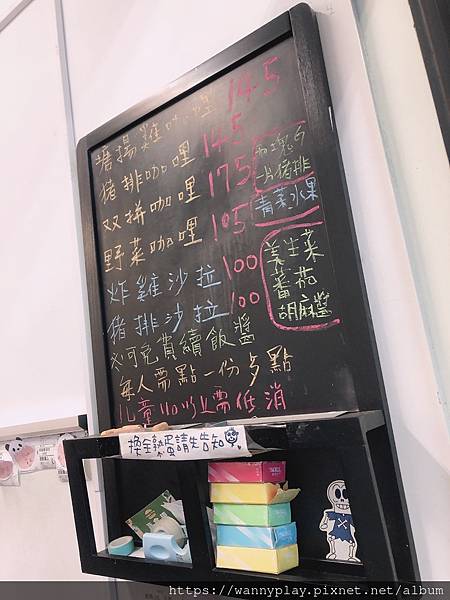 塘揚雞咖哩 145
豬排咖哩 145
双拼咖哩 175
兩塊雞
一片豬排
野菜咖哩 105
青菜水果
炸雞沙拉 100
豬排沙拉 100
美生菜
蕃茄
胡麻醬
可免費續飯醬
每人需點一份餐點
兒童110以上需低消
換全熟蛋請先告知
https://wannyplay.pixnet.net/album